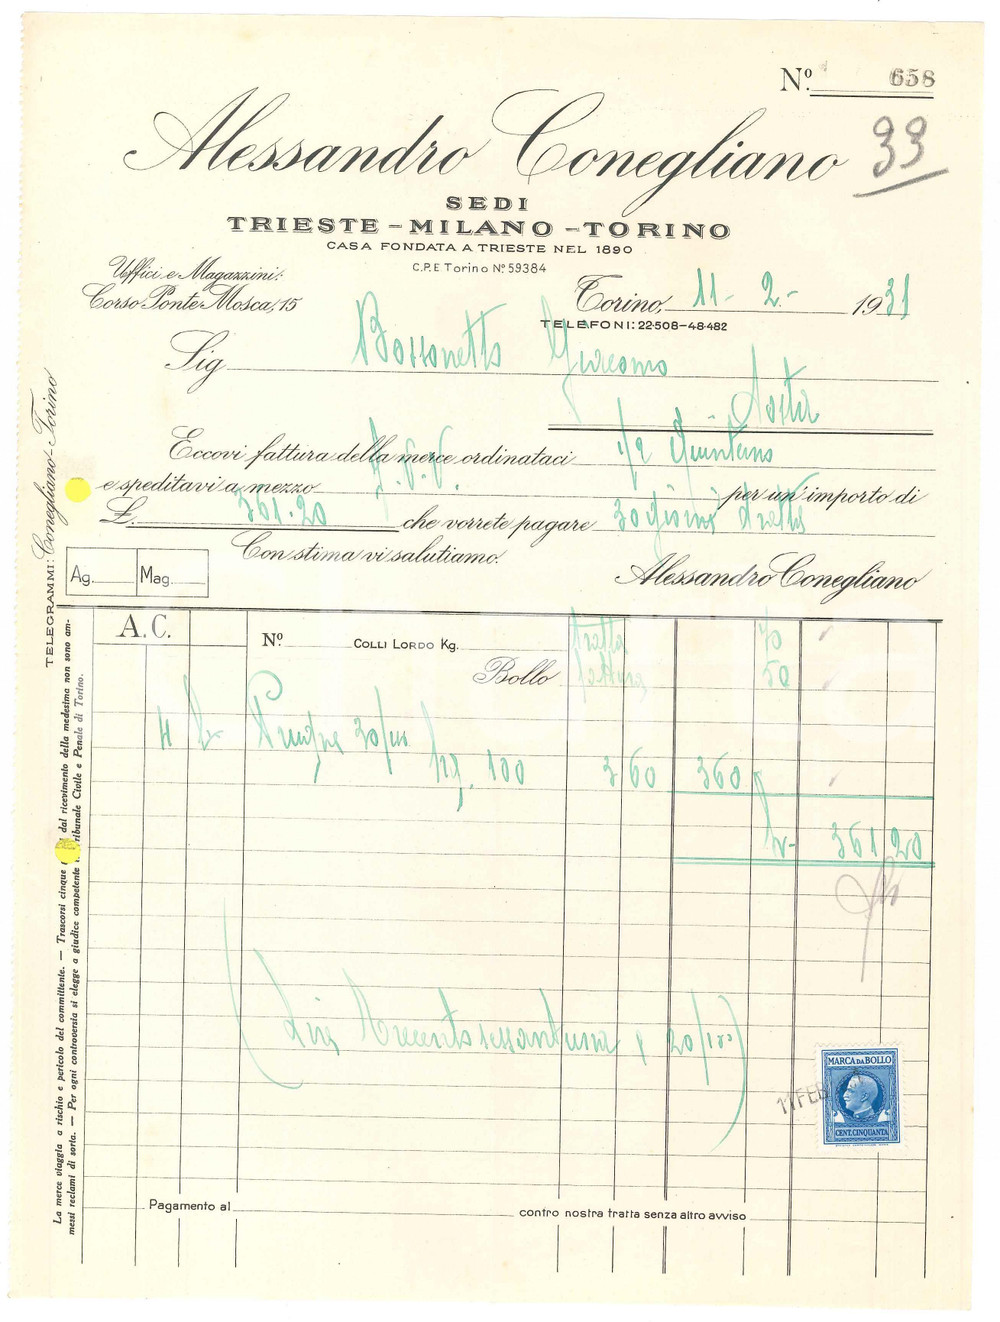 Nº. 658
33
Alessandro Conegliano
SEDI
TRIESTE - MILANO - TORINO
CASA FONDATA A TRIESTE NEL 1890
C.P.E Torino Nº 59384
Uffici e Magazzini:
Corso Ponte Mosca, 15
Torino, 11 - 2 - 1931
TELEFONI: 22-508-48-482
Sig Giacomo
Eccovi fattura della merce ordinataci 1/2
e speditavi a mezzo per un importo di
£. 361.20 che vorrete pagare 30 giorni tratta
Con stima vi salutiamo.
Alessandro Conegliano
TELEGRAMMI: Conegliano-Torino
Ag. Mag.
A. C.
Nº COLLI LORDO Kg. tratta 70
Bollo fattura 50
4 30/
Kg. 100 3 60 360
361 20
(Lire Trecentosessantuna e 20/100)
MARCA DA BOLLO
CENT. CINQUANTA
11 FEB
Pagamento al contro nostra tratta senza altro avviso
La merce viaggia a rischio e pericolo del committente. — Trascorsi cinque dal ricevimento della medesima non sono am-
messi reclami di sorta. — Per ogni controversia si elegge a giudice competente Tribunale Civile e Penale di Torino.